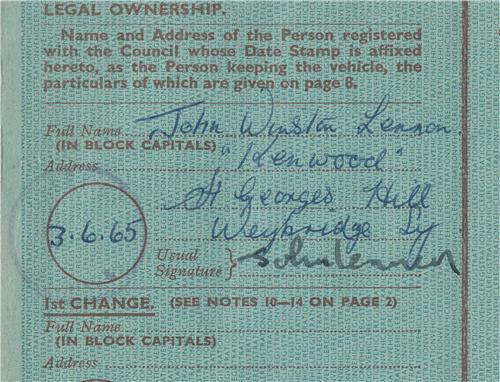 LEGAL OWNERSHIP.
Name and Address of the Person registered
with the Council whose Date Stamp is affixed
hereto, as the Person keeping the vehicle, the
particulars of which are given on page 8.
Full Name John Winston Lennon.
(IN BLOCK CAPITALS)
Address "Kenwood"
St Georges Hill
3.6.65 Weybridge Sy
Usual
Signature } John Lennon
1st CHANGE. (SEE NOTES 10—14 ON PAGE 2)
Full Name
(IN BLOCK CAPITALS)
Address